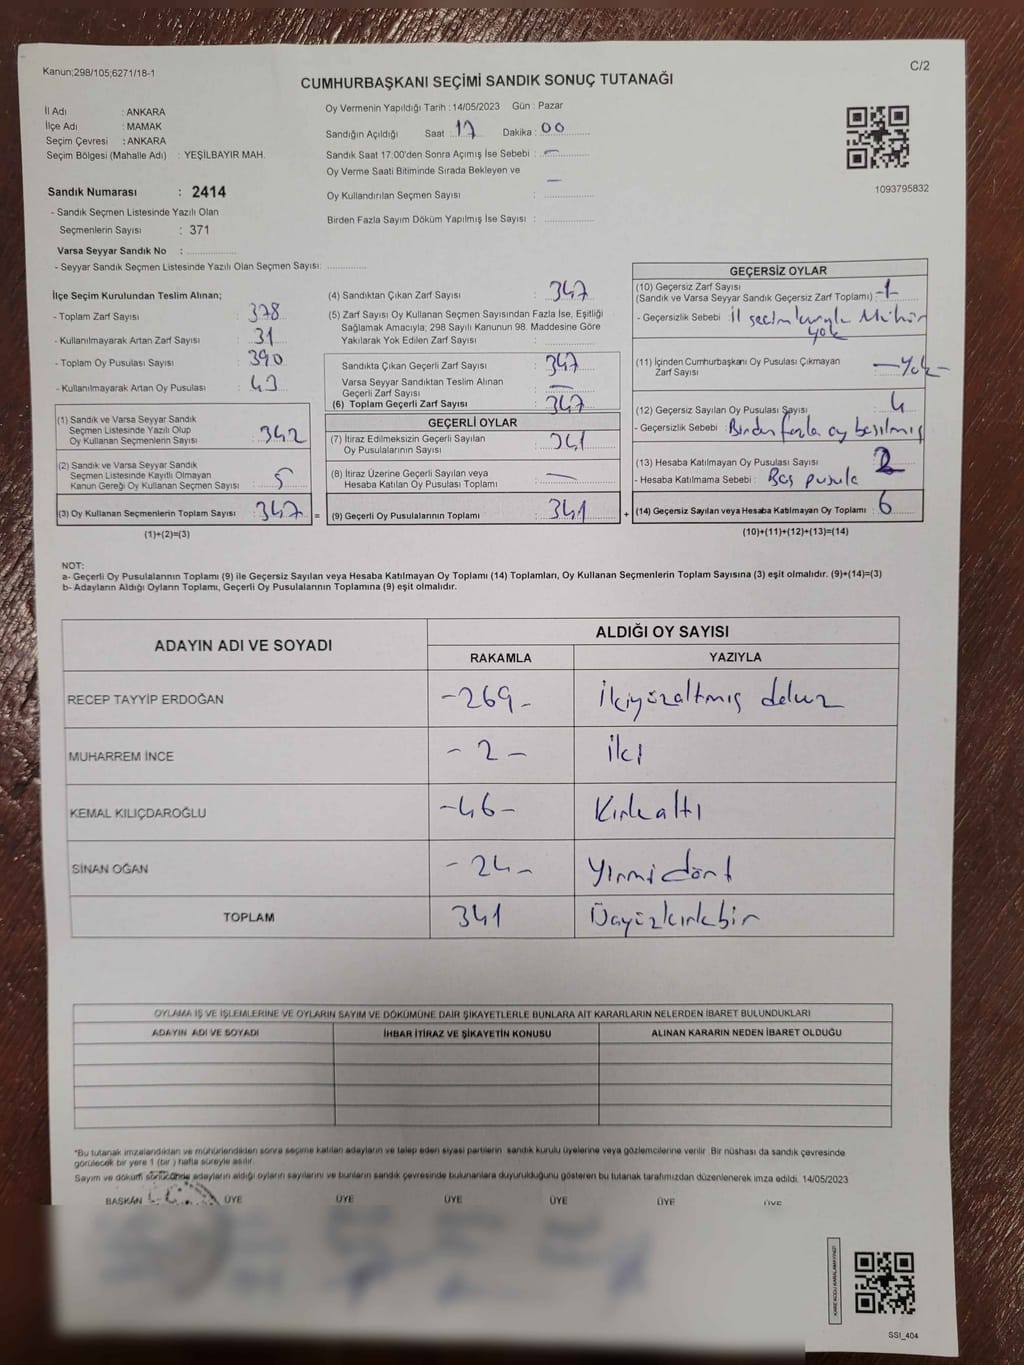 Kanun;298/105;6271/18-1
C/2
CUMHURBAŞKANI SEÇİMİ SANDIK SONUÇ TUTANAĞI
İl Adı : ANKARA
İlçe Adı : MAMAK
Seçim Çevresi : ANKARA
Seçim Bölgesi (Mahalle Adı) : YEŞİLBAYIR MAH.
Oy Vermenin Yapıldığı Tarih : 14/05/2023 Gün : Pazar
Sandığın Açıldığı Saat : 17 Dakika : 00
Sandık Saat 17:00'den Sonra Açımış İse Sebebi : —
Oy Verme Saati Bitiminde Sırada Bekleyen ve —
Oy Kullandırılan Seçmen Sayısı :
Birden Fazla Sayım Döküm Yapılmış İse Sayısı :
1093795832
Sandık Numarası : 2414
- Sandık Seçmen Listesinde Yazılı Olan
Seçmenlerin Sayısı : 371
Varsa Seyyar Sandık No :
- Seyyar Sandık Seçmen Listesinde Yazılı Olan Seçmen Sayısı:
İlçe Seçim Kurulundan Teslim Alınan;
- Toplam Zarf Sayısı : 378
- Kullanılmayarak Artan Zarf Sayısı : 31
- Toplam Oy Pusulası Sayısı : 390
- Kullanılmayarak Artan Oy Pusulası : 43
(1) Sandık ve Varsa Seyyar Sandık
Seçmen Listesinde Yazılı Olup
Oy Kullanan Seçmenlerin Sayısı : 342
(2) Sandık ve Varsa Seyyar Sandık
Seçmen Listesinde Kayıtlı Olmayan
Kanun Gereği Oy Kullanan Seçmen Sayısı : 5
(3) Oy Kullanan Seçmenlerin Toplam Sayısı : 347 =
(1)+(2)=(3)
(4) Sandıktan Çıkan Zarf Sayısı : 347
(5) Zarf Sayısı Oy Kullanan Seçmen Sayısından Fazla İse, Eşitliği
Sağlamak Amacıyla; 298 Sayılı Kanunun 98. Maddesine Göre
Yakılarak Yok Edilen Zarf Sayısı :
Sandıkta Çıkan Geçerli Zarf Sayısı : 347
Varsa Seyyar Sandıktan Teslim Alınan
Geçerli Zarf Sayısı : —
(6) Toplam Geçerli Zarf Sayısı : 347
GEÇERLİ OYLAR
(7) İtiraz Edilmeksizin Geçerli Sayılan
Oy Pusulalarının Sayısı : 341
(8) İtiraz Üzerine Geçerli Sayılan veya
Hesaba Katılan Oy Pusulası Toplamı : —
(9) Geçerli Oy Pusulalarının Toplamı : 341 +
GEÇERSİZ OYLAR
(10) Geçersiz Zarf Sayısı
(Sandık ve Varsa Seyyar Sandık Geçersiz Zarf Toplamı) : -1
- Geçersizlik Sebebi : İl seçim kuruyla Mühür
yok
(11) İçinden Cumhurbaşkanı Oy Pusulası Çıkmayan
Zarf Sayısı : —Yok—
(12) Geçersiz Sayılan Oy Pusulası Sayısı : 4
- Geçersizlik Sebebi : Birden fazla oy basılmış
(13) Hesaba Katılmayan Oy Pusulası Sayısı
- Hesaba Katılmama Sebebi : Boş pusula
(14) Geçersiz Sayılan veya Hesaba Katılmayan Oy Toplamı : 6
(10)+(11)+(12)+(13)=(14)
NOT:
a- Geçerli Oy Pusulalarının Toplamı (9) ile Geçersiz Sayılan veya Hesaba Katılmayan Oy Toplamı (14) Toplamları, Oy Kullanan Seçmenlerin Toplam Sayısına (3) eşit olmalıdır. (9)+(14)=(3)
b- Adayların Aldığı Oyların Toplamı, Geçerli Oy Pusulalarının Toplamına (9) eşit olmalıdır.
ADAYIN ADI VE SOYADI ALDIĞI OY SAYISI
RAKAMLA YAZIYLA
RECEP TAYYİP ERDOĞAN -269- İkiyüzaltmış dokuz
MUHARREM İNCE - 2 - İki
KEMAL KILIÇDAROĞLU -46- Kırkaltı
SİNAN OĞAN - 24 - Yirmidört
TOPLAM 341 Üçyüzkırkbir
OYLAMA İŞ VE İŞLEMLERİNE VE OYLARIN SAYIM VE DÖKÜMÜNE DAİR ŞİKAYETLERLE BUNLARA AİT KARARLARIN NELERDEN İBARET BULUNDUKLARI
ADAYIN ADI VE SOYADI İHBAR İTİRAZ VE ŞİKAYETİN KONUSU ALINAN KARARIN NEDEN İBARET OLDUĞU
*Bu tutanak imzalandıktan ve mühürlendikten sonra seçime katılan adayların ve talep eden siyasi partilerin sandık kurulu üyelerine veya gözlemcilerine verilir. Bir nüshası da sandık çevresinde
görülecek bir yere 1 (bir) hafta süreyle asılır.
Sayım ve döküm sonucunda adayların aldığı oyların sayılarını ve bunların sandık çevresinde bulunanlara duyurulduğunu gösteren bu tutanak tarafımızdan düzenlenerek imza edildi. 14/05/2023
BAŞKAN ÜYE ÜYE ÜYE ÜYE ÜYE ÜYE
SSI_404